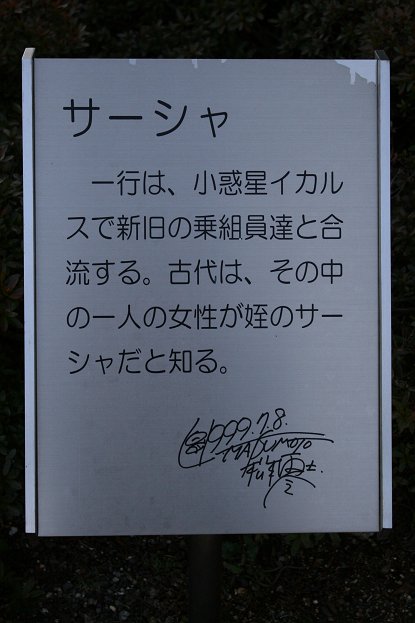 サーシャ
一行は、小惑星イカル
スで新旧の乗組員達と合
流する。古代は、その中
の一人の女性が姪のサー
シャだと知る。
1999.7.8.